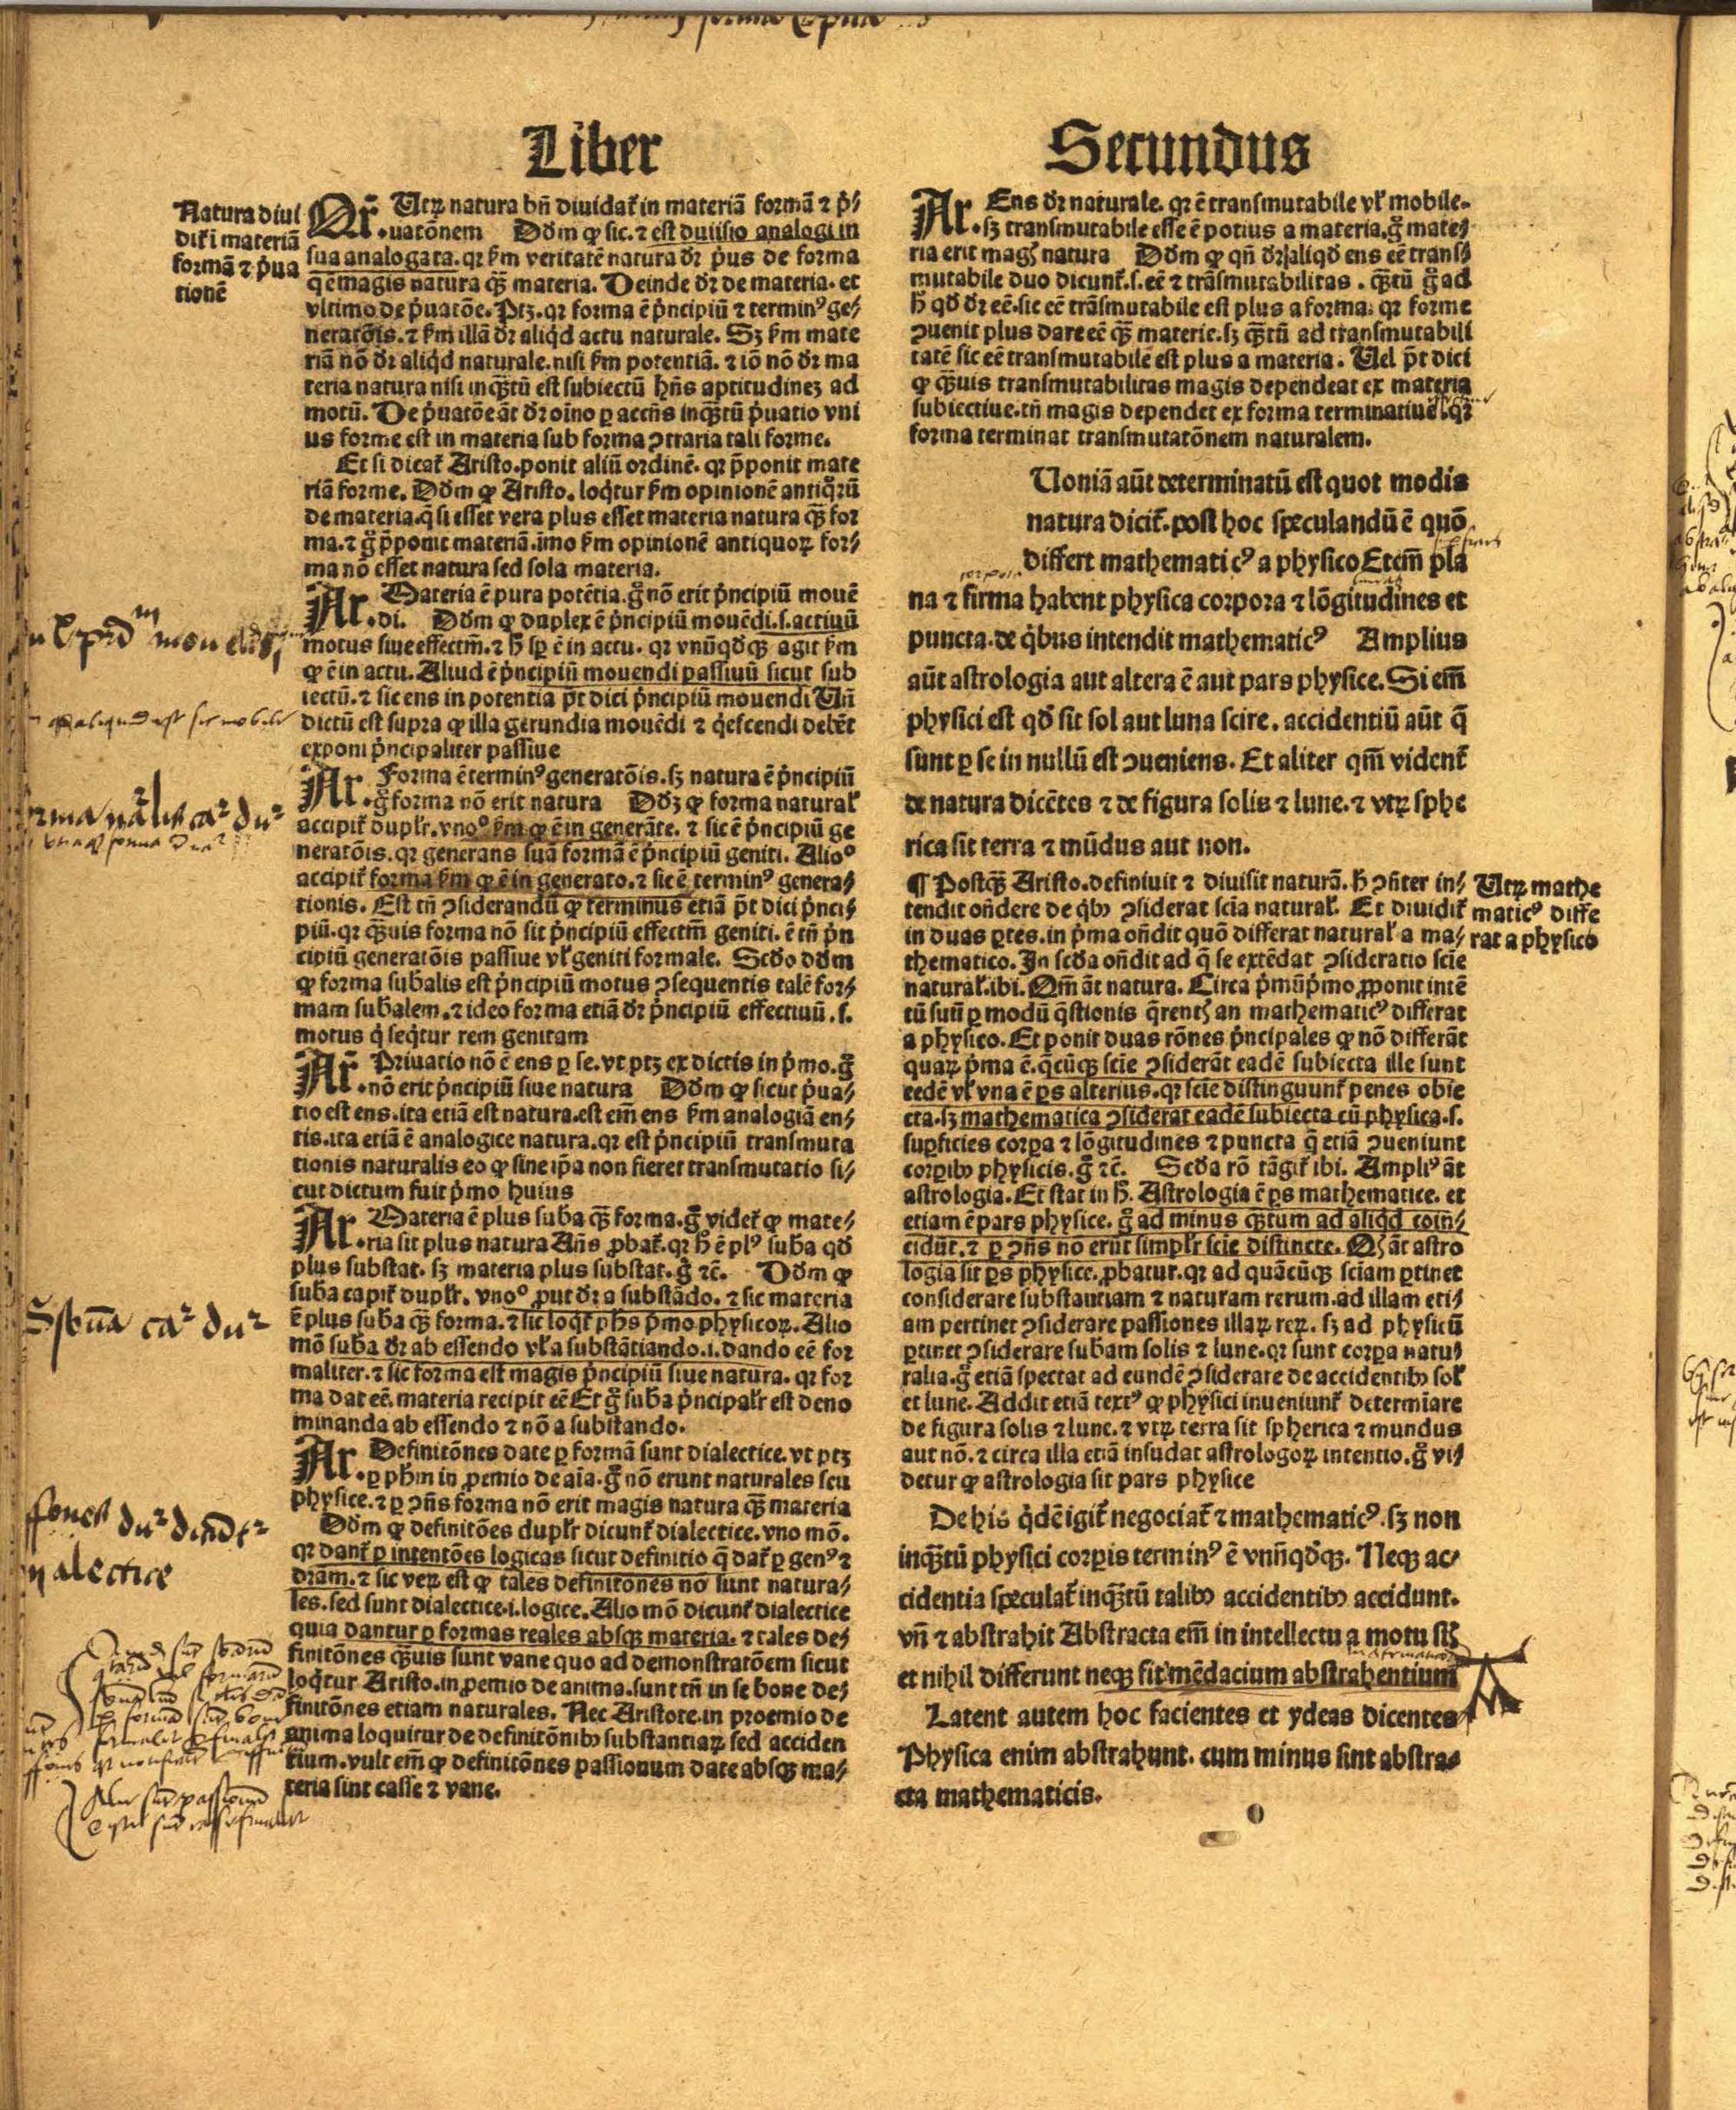 Liber
Secundus
Natura diui
dit̃ i materiã
formã ⁊ p̓ua
tionẽ
Qr̃. Utꝝ natura bñ diuidat̃ in materiã formã ⁊ p̓⸗
uatõnem Dõm ꝙ sic. ⁊ est diuisio analogi in
sua analogata. qꝛ ẜm veritatẽ natura dꝛ p̓us de forma
q̃ ẽ magis natura q̃ꝫ materia. Deinde dꝛ de materia. et
vltimo de p̓uatõe. Ptꝫ. qꝛ forma ẽ p̓ncipiũ ⁊ termin⁹ ge⸗
neratõis. ⁊ ẜm illã dꝛ aliq̓d actu naturale. Sꝫ ẜm mate
riã nõ dꝛ aliq̓d naturale. nisi ẜm potentiã. ⁊ iõ nõ dꝛ ma
teria natura nisi inq̃ꝫtũ est subiectũ hñs aptitudineꝫ ad
motũ. De p̓uatõe ãt dꝛ oĩno ꝑ accñs inq̃ꝫtũ p̓uatio vni
us forme est in materia sub forma ↄtraria tali forme.
Et si dicat̃ Aristo. ponit aliũ ordinẽ. qꝛ p̄ponit mate
riã forme. Dõm ꝙ Aristo. loq̓tur ẜm opinionẽ antiq̓ꝛũ
de materia. q̃ si esset vera plus esset materia natura q̃ꝫ for
ma. ⁊ g̃ p̄ponit materiã. ĩmo ẜm opinionẽ antiquoꝝ for⸗
ma nõ esset natura sed sola materia.
Ar. Materia ẽ pura potẽtia. g̃ nõ erit p̓ncipiũ mouẽ
di. Dõm ꝙ duplex ẽ p̓ncipiũ mouẽdi. s. actiuũ
motus siue effectiũ. ⁊ ħ sꝑ ẽ in actu. qꝛ vnũqõq̃ꝫ agit ẜm
ꝙ ẽ in actu. Aliud ẽ p̓ncipiũ mouendi passiuũ sicut sub
iectũ. ⁊ sic ens in potentia p̃t dici p̓ncipiũ mouendi Uñ
dictũ est supra ꝙ illa gerundia mouẽdi ⁊ q̓escendi debẽt
exponi p̓ncipaliter passiue
Ar. Forma ẽ termin⁹ generatõis. sꝫ natura ẽ p̓ncipiũ
g̃ forma nõ erit natura Dõꝫ ꝙ forma natural̃
accipit̃ dupl̃r. vnoº ẜm ꝙ ẽ in generãte. ⁊ sic ẽ p̓ncipiũ ge
neratõis. qꝛ generans suã formã ẽ p̓ncipiũ geniti. Alioº
accipit̃ forma ẜm ꝙ ẽ in generato. ⁊ sic ẽ termin⁹ genera⸗
tionis. Est tñ ↄsiderandũ ꝙ terminus etiã p̃t dici p̓nci⸗
piũ. qꝛ q̃ꝫuis forma nõ sit p̓ncipiũ effectiũ geniti. ẽ tñ p̓n
cipiũ generatõis passiue vl̃ geniti formale. Scõo dõm
ꝙ forma subalis est p̓ncipiũ motus ↄsequentis talẽ for⸗
mam subalem. ⁊ ideo forma etiã dꝛ p̓ncipiũ effectiuũ. s.
motus q̓ seq̓tur rem genitam
Ar. Priuatio nõ ẽ ens ꝑ se. vt ptꝫ ex dictis in p̓mo. g̃
nõ erit p̓ncipiũ siue natura Dõm ꝙ sicut p̓ua⸗
tio est ens. ita etiã est natura. est em̃ ens ẜm analogiã en⸗
tis. ita etiã ẽ analogice natura. qꝛ est p̓ncipiũ transmuta
tionis naturalis eo ꝙ sine ip̃a non fieret transmutatio si⸗
cut dictum fuit p̓mo huius
Ar. Materia ẽ plus suba q̃ꝫ forma. g̃ videt̃ ꝙ mate⸗
ria sit plus natura Añs ꝓbat̃. qꝛ ħ ẽ pl⁹ suba qõ
plus substat. sꝫ materia plus substat. g̃ ⁊c̃. Dõm ꝙ
suba capit̃ dupl̃r. vnoº ꝓut dꝛ a substãdo. ⁊ sic materia
ẽ plus suba q̃ꝫ forma. ⁊ sic loq̓t̃ pħs p̓mo physicoꝝ. Alio
mõ suba dꝛ ab essendo vl̃ a substãtiando. i. dando eẽ for
maliter. ⁊ sic forma est magis p̓ncipiũ siue natura. qꝛ for
ma dat eẽ. materia recipit eẽ Et g̃ suba p̓ncipal̃r est deno
minanda ab essendo ⁊ nõ a substando.
Ar. Definitõnes date ꝑ formã sunt dialectice. vt ptꝫ
ꝑ pħm in ꝓemio de aĩa. g̃ nõ erunt naturales seu
physice. ⁊ ꝑ ↄñs forma nõ erit magis natura q̃ꝫ materia
Dõm ꝙ definitões dupl̃r dicunt̃ dialectice. vno mõ.
qꝛ dant̃ ꝑ intentões logicas sicut definitio q̃ dat̃ ꝑ gen⁹ ⁊
dr̃am. ⁊ sic veꝝ est ꝙ tales definitões nõ sunt natura⸗
les. sed sunt dialectice. i. logice. Alio mõ dicunt̃ dialectice
quia dantur ꝑ formas reales absqꝫ materia. ⁊ tales de⸗
finitõnes q̃ꝫuis sunt vane quo ad demonstratõem sicut
loq̓tur Aristo. in ꝓemio de anima. sunt tñ in se bone de⸗
finitõnes etiam naturales. Nec Aristote. in proemio de
anima loquitur de definitõnibꝰ substantiaꝝ sed acciden
tium. vult em̃ ꝙ definitõnes passionum date absqꝫ ma⸗
teria sint casse ⁊ vane.
Ar. Ens dꝛ naturale. qꝛ ẽ transmutabile vl̃ mobile.
sꝫ transmutabile esse ẽ potius a materia. g̃ mate⸗
ria erit magꝭ natura Dõm ꝙ qñ dꝛ aliqõ ens eẽ trans⸗
mutabile duo dicunt̃. s. eẽ ⁊ trãsmutabilitas. q̃ꝫtũ g̃ ad
ħ qõ dꝛ eẽ. sic eẽ trãsmutabile est plus a forma. qꝛ forme
ↄuenit plus dare eẽ q̃ꝫ materie. sꝫ q̃ꝫtũ ad transmutabili
tatẽ sic eẽ transmutabile est plus a materia. Uel p̃t dici
ꝙ q̃ꝫuis transmutabilitas magis dependeat ex materia
subiectiue. tñ magis dependet ex forma terminatiue. qꝛ
forma terminat transmutatõnem naturalem.
Uoniã aũt determinatũ est quot modis
natura dicit̃. post hoc speculandũ ẽ quõ
differt mathematic⁹ a physico Etem̃ pla
na ⁊ firma habent physica corpora ⁊ lõgitudines et
puncta. de q̓bus intendit mathematic⁹ Amplius
aũt astrologia aut altera ẽ aut pars physice. Si em̃
physici est qõ sit sol aut luna scire. accidentiũ aũt q̃
sunt ꝑ se in nullũ est ↄueniens. Et aliter qm̃ vident̃
de natura dicẽtes ⁊ de figura solis ⁊ lune. ⁊ vtꝝ sphe
rica sit terra ⁊ mũdus aut non.
¶ Postq̃ꝫ Aristo. definiuit ⁊ diuisit naturã. ħ ↄñter in⸗
tendit oñdere de q̓bꝰ ↄsiderat scĩa natural̃. Et diuidit̃
in duas ꝑtes. in p̓ma oñdit quõ differat natural̃ a ma⸗
thematico. In scõa oñdit ad q̃ se extẽdat ↄsideratio scĩe
natural̃. ibi. Qm̃ ãt natura. Circa p̓mũ p̓mo ꝓponit intẽ
tũ suũ ꝑ modũ q̃stionis q̃rentꝭ an mathematic⁹ differat
a physico. Et ponit duas rões p̓ncipales ꝙ nõ differãt
quaꝝ p̓ma ẽ. q̃cũqꝫ scĩe ↄsiderãt eadẽ subiecta ille sunt
eedẽ vl̃ vna ẽ ꝑs alterius. qꝛ scĩe distinguunt̃ penes obie
cta. sꝫ mathematica ↄsiderat eadẽ subiecta cũ physica. s.
suꝑficies corꝑa ⁊ lõgitudines ⁊ puncta q̃ etiã ↄueniunt
corꝑibꝰ physicis. g̃ ⁊c̃. Scõa rõ tãgit̃ ibi. Ampli⁹ ãt
astrologia. Et stat in ħ. Astrologia ẽ ꝑs mathematice. et
etiam ẽ pars physice. g̃ ad minus q̃ꝫtum ad aliq̓d coin⸗
cidũt. ⁊ ꝑ ↄñs nõ erũt simpl̃r scĩe distincte. Qꝭ ãt astro
logia sit ꝑs physice. ꝓbatur. qꝛ ad quãcũqꝫ sciam ꝑtinet
considerare substantiam ⁊ naturam rerum. ad illam eti⸗
am pertinet ↄsiderare passiones illaꝝ reꝝ. sꝫ ad physicũ
ꝑtinet ↄsiderare subam solis ⁊ lune. qꝛ sunt corꝑa natu⸗
ralia. g̃ etiã spectat ad eundẽ ↄsiderare de accidentibꝰ sol̃
et lune. Addit etiã text⁹ ꝙ physici inueniunt̃ determĩare
de figura solis ⁊ lune. ⁊ vtꝝ terra sit spherica ⁊ mundus
aut nõ. ⁊ circa illa etiã insudat astrologoꝝ intentio. g̃ vi⸗
detur ꝙ astrologia sit pars physice
Utꝝ mathe
matic⁹ diffe
rat a physico
De his q̓dẽ igit̃ negociat̃ ⁊ mathematic⁹. sꝫ non
inq̃ꝫtũ physici corꝑis termin⁹ ẽ vnũqõqꝫ. Neqꝫ ac⸗
cidentia speculat̃ inq̃ꝫtũ talibꝰ accidentibꝰ accidunt.
vñ ⁊ abstrahit Abstracta em̃ in intellectu a motu st̃
et nihil differunt neqꝫ fit mẽdacium abstrahentium
Latent autem hoc facientes et ydeas dicentes
Physica enim abstrahunt. cum minus sint abstra⸗
cta mathematicis.